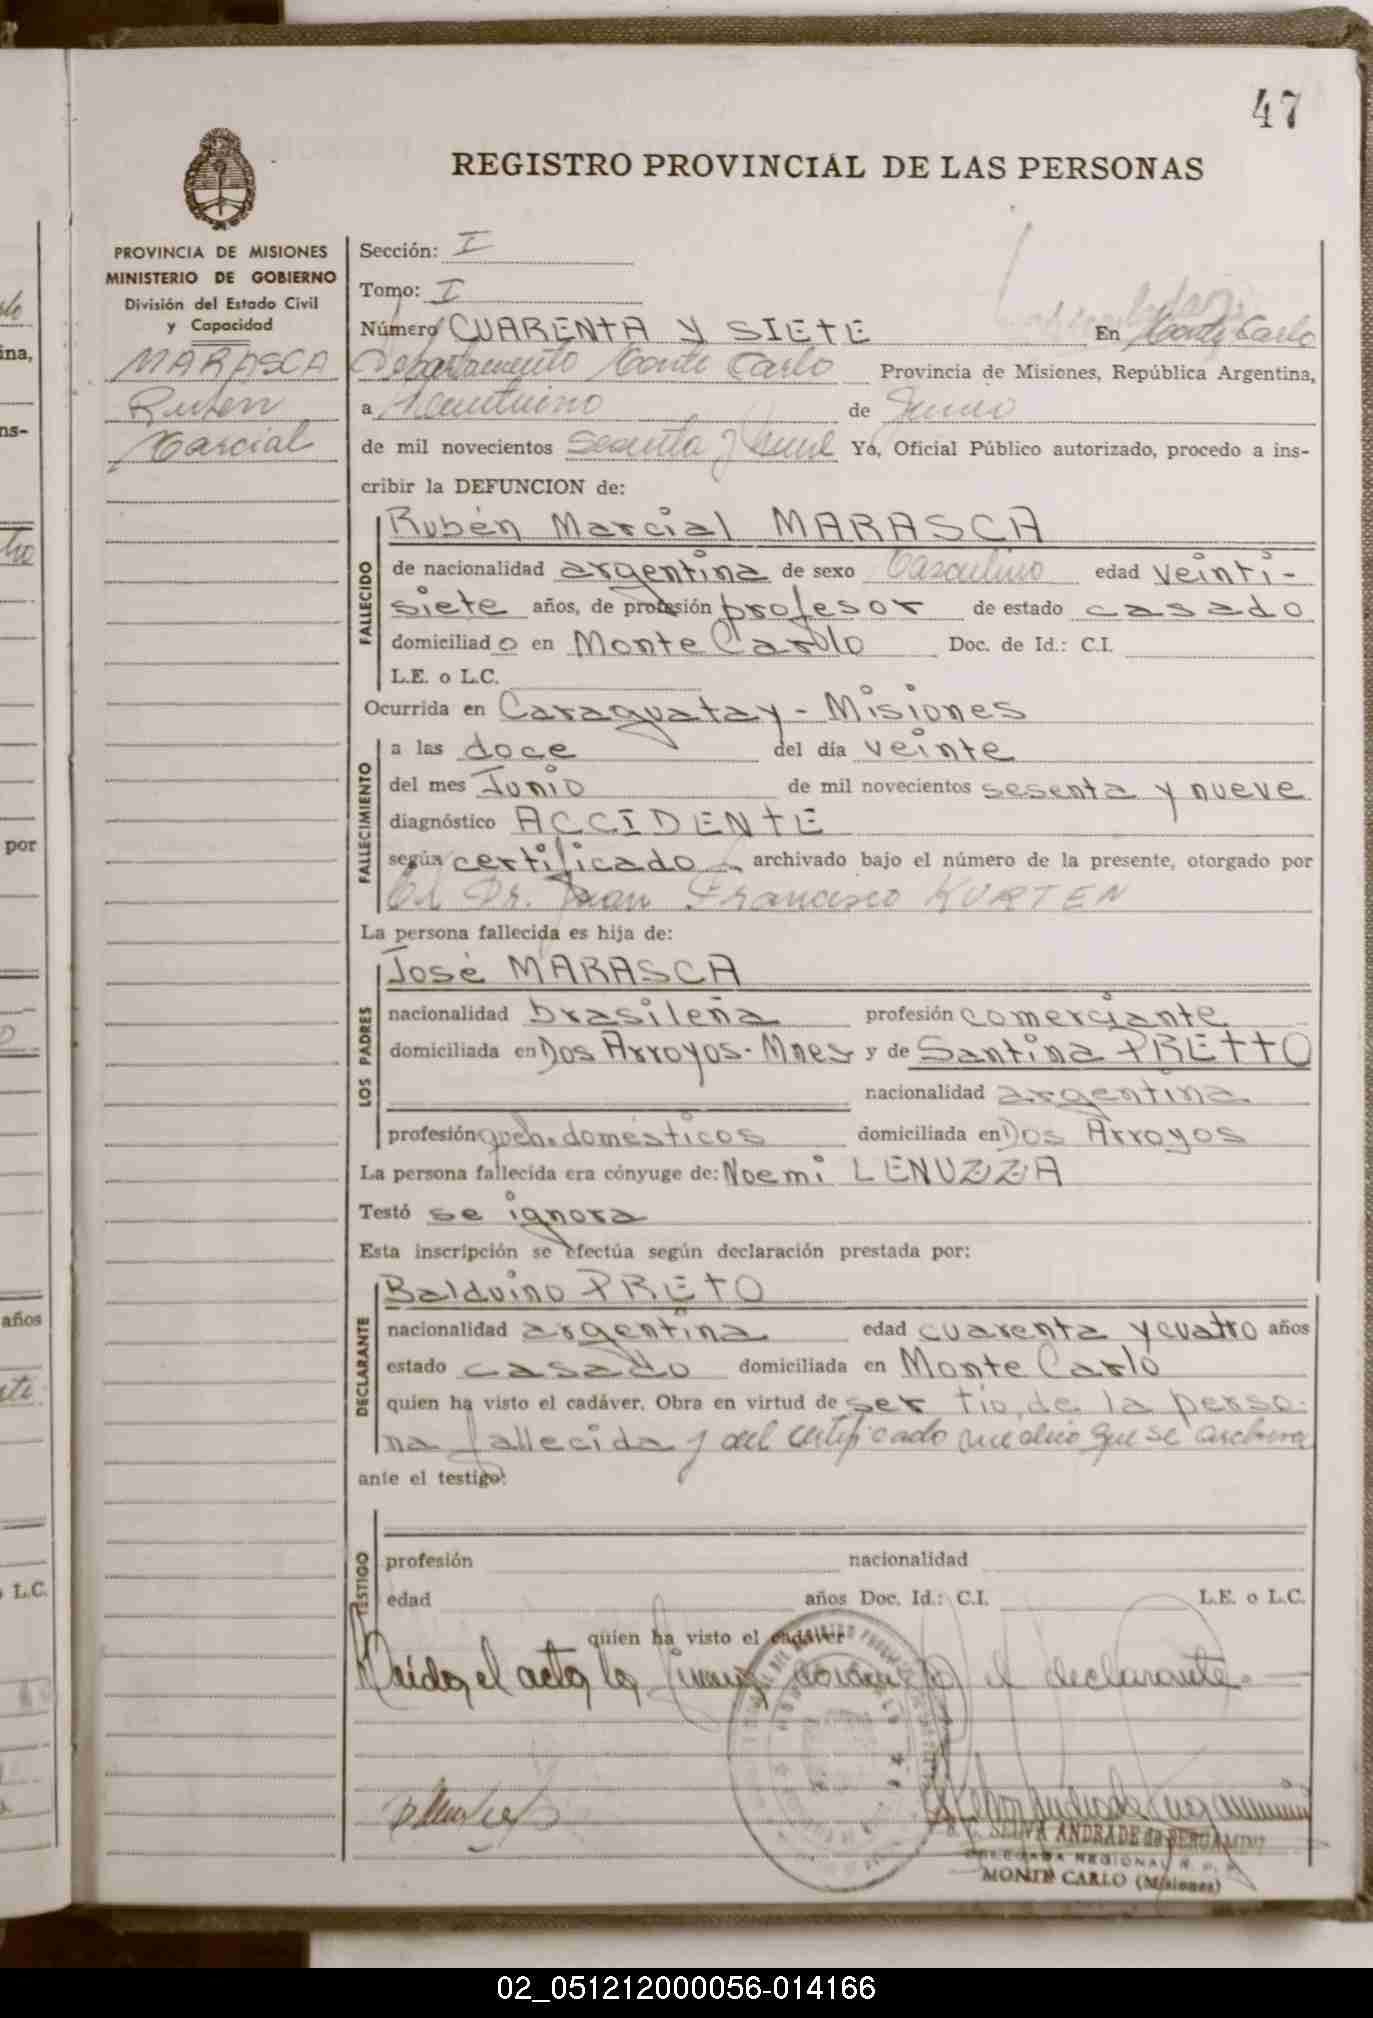 47
REGISTRO PROVINCIAL DE LAS PERSONAS
PROVINCIA DE MISIONES
MINISTERIO DE GOBIERNO
División del Estado Civil
y Capacidad
MARASCA
Ruben
Marcial
Sección: I
Tomo: I
Número CUARENTA Y SIETE En Monte Carlo
Departamento Monte Carlo Provincia de Misiones, República Argentina,
a Veintiuno de Junio
de mil novecientos sesenta y nueve Yo, Oficial Público autorizado, procedo a ins-
cribir la DEFUNCION de:
FALLECIDO
Rubén Marcial MARASCA
de nacionalidad argentina de sexo Masculino edad veinti-
siete años, de profesión profesor de estado casado
domiciliado en Monte Carlo Doc. de Id.: C.I.
L.E. o L.C.
Ocurrida en Caraguatay - Misiones
FALLECIMIENTO
a las doce del día veinte
del mes Junio de mil novecientos sesenta y nueve
diagnóstico ACCIDENTE
según certificado archivado bajo el número de la presente, otorgado por
el Dr. Juan Francisco KURTEN
La persona fallecida es hija de:
LOS PADRES
José MARASCA
nacionalidad brasileña profesión comerciante
domiciliada en Dos Arroyos - Mnes y de Santina PRETTO
nacionalidad argentina
profesión queh. domésticos domiciliada en Dos Arroyos
La persona fallecida era cónyuge de: Noemi LENUZZA
Testó se ignora
Esta inscripción se efectúa según declaración prestada por:
DECLARANTE
Balduino PRETO
nacionalidad argentina edad cuarenta y cuatro años
estado casado domiciliada en Monte Carlo
quien ha visto el cadáver. Obra en virtud de ser tío de la perso-
na fallecida y del certificado medico que se archiva
ante el testigo:
TESTIGO
profesión nacionalidad
edad años Doc. Id.: C.I. L.E. o L.C.
quien ha visto el cadáver
Leida el acta la firma conmigo el declarante.
SELVA ANDRADE de BERGAMINI
DELEGADA REGIONAL R. P. P.
MONTE CARLO (Misiones)
02_051212000056-014166